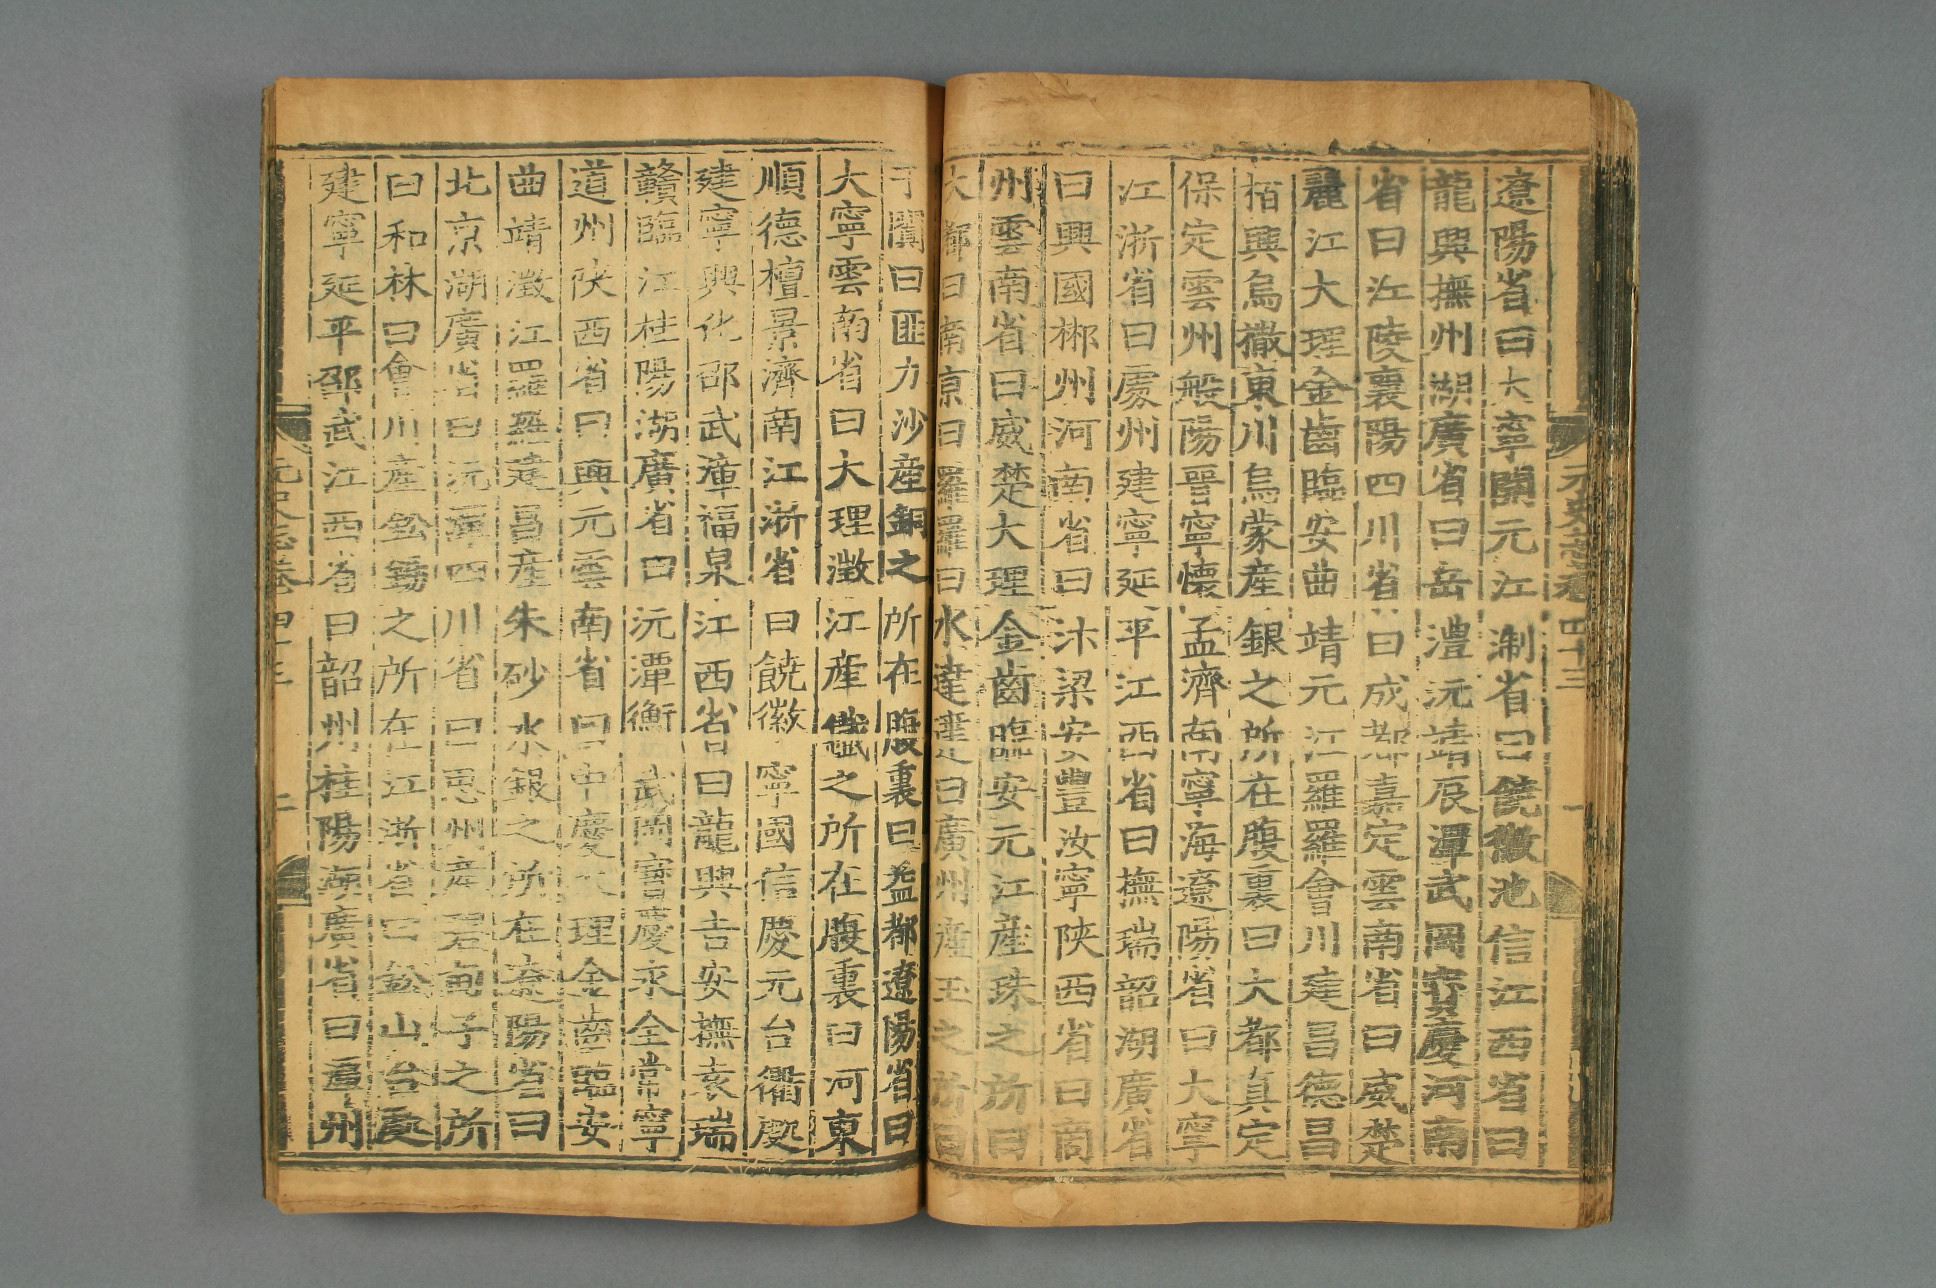 元史志卷四十三 一
遼陽省曰大寧開元江淛省曰饒徽池信江西省曰
龍興撫州湖廣省曰岳澧沅靖辰潭武岡寶慶河南
省曰江陵襄陽四川省曰成都嘉定雲南省曰威楚
麗江大理金齒臨安曲靖元江羅羅會川建昌德昌
栢興烏撒東川烏蒙產銀之所在腹裏曰大都真定
保定雲州般陽晉寧懷孟濟南寧海遼陽省曰大寧
江浙省曰處州建寧延平江西省曰撫瑞韶湖廣省
曰興國郴州河南省曰汴梁安豐汝寧陝西省曰商
州雲南省曰威楚大理金齒臨安元江產珠之所曰
大都曰南京曰羅羅曰水達達曰廣州產玉之所曰
于闐曰匪力沙產銅之所在腹裏曰益都遼陽省曰
大寧雲南省曰大理澂江產鐵之所在腹裏曰河東
順德檀景濟南江浙省曰饒徽寧國信慶元台衢處
建寧興化邵武漳福泉江西省曰龍興吉安撫袁瑞
贛臨江桂陽湖廣省曰沅潭衡武岡寶慶永全常寧
道州陝西省曰興元雲南省曰中慶大理金齒臨安
曲靖澂江羅羅建昌產朱砂水銀之所在遼陽省曰
北京湖廣省曰沅潭四川省曰思州產碧甸子之所
曰和林曰會川產鉛錫之所在江浙省曰鉛山台處
建寧延平邵武江西省曰韶州桂陽湖廣省曰潭州
元史志卷四十三 二